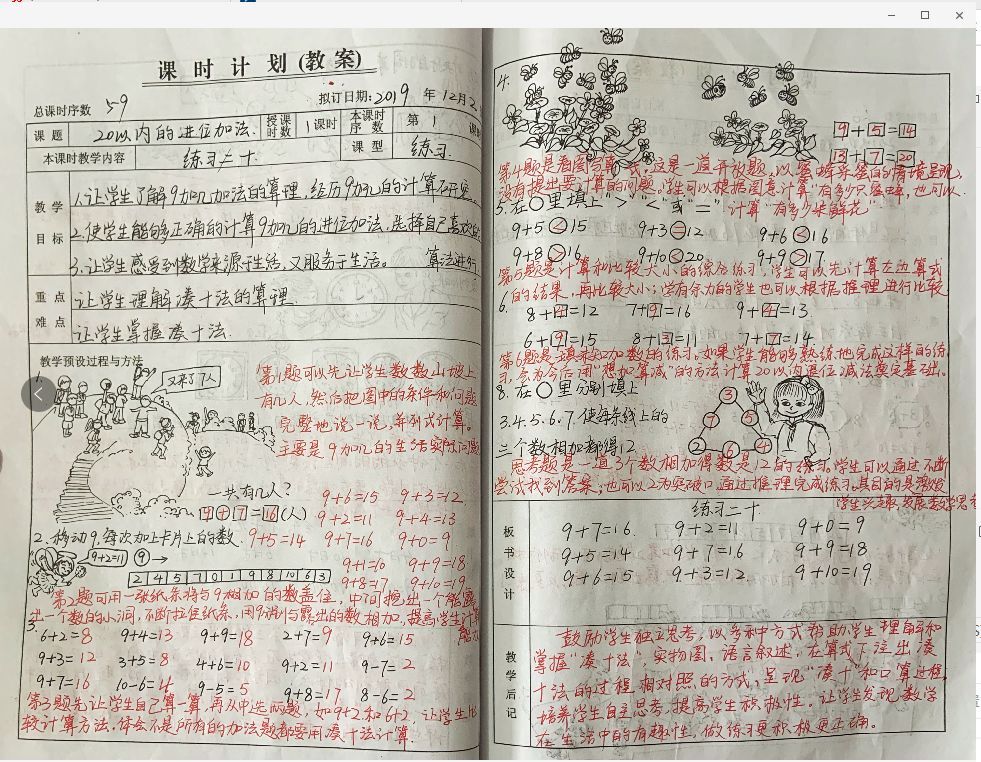 课时计划(教案)
总课时序数 59
拟订日期:2019 年 12月2
课题 20以内的进位加法. 授课时数 1课时 本课时序数 第 1 课时
本课时教学内容 练习二十. 课型 练习.
教学目标
1.让学生了解9加几加法的算理,经历9加几的计算
2.使学生能够正确的计算9加几的进位加法,选择自己喜欢的
算法进行
3.让学生感受到数学来源于生活,又服务于生活。
重点 让学生理解凑十法的算理.
难点 让学生掌握凑十法.
教学预设过程与方法
1.
又来了7人
第1题可以先让学生数数山坡上
有几人,然后把图中的条件和问题
完整地说一说,并列式计算。
主要是9加几的生活实际问题
一共有几人?
9+7=16(人)
9+6=15 9+3=12
9+2=11 9+4=13
2.移动9,每次加上卡片上的数.
9+5=14 9+7=16 9+0=9
9+2=11 9→
9+1=10 9+9=18
2 4 5 7 0 1 9 8 10 6 3
9+8=17 9+10=19
第2题可用一张纸条将与9相加的数盖住,中间挖出一个能露
出一个数的小洞,不断拉住纸条,用9和与露出的数相加,提高学生计算
能力
3.
6+2=8 9+4=13 9+9=18 2+7=9 9+6=15
9+3=12 3+5=8 4+6=10 9+2=11 9-7=2
9+7=16 10-6=4 9-5=5 9+8=17 8-6=2
第3题先让学生自己算一算,再从中选两题,如9+2和6+2,让学生比
较计算方法,体会不是所有的加法题都要用凑十法计算.
4.
9+5=14
13+7=20
第4题是看图写算式,这是一道开放题,以蜜蜂采蜜的情境呈现,
没有提出要计算的问题。学生可以根据图意计算"有多少只蜜蜂,也可以
计算"有多少朵鲜花"
5.在○里填上">""<"或"="
9+5<15 9+3=12 9+6<16
9+8>16 9+10<20 9+9>17
第5题是计算和比较大小的综合练习,学生可以先计算左边算式
的结果,再比较大小;学有余力的学生也可以根据推理进行比较
6.
8+4=12 7+9=16 9+4=13.
6+9=15 8+3=11 7+7=14
第6题是填未知加数的练习。如果学生能够熟练地完成这样的练
习,会为今后用"想加算减"的方法计算20以内退位减法奠定基础.
8.在○里分别填上
3.4.5.6.7.使每条线上的
三个数相加都得12.
3
7 5
2 6 4
思考题是一道3个数相加得数是12的练习,学生可以通过不断
尝试找到答案;也可以2为突破口通过推理完成练习。其目的是激发
学生兴趣,发展数学思考
板书设计
练习二十.
9+7=16. 9+2=11 9+0=9
9+5=14 9+7=16 9+9=18
9+6=15 9+3=12 9+10=19
教学后记
鼓励学生独立思考,以多种方式帮助学生理解和
掌握"凑十法",实物图、语言叙述、在算式下注出凑
十法的过程相对照的方式,呈现"凑十"和口算过程,
培养学生自主思考,提高学生积极性。让学生发现数学
在生活中的有趣性,做练习更积极更正确。